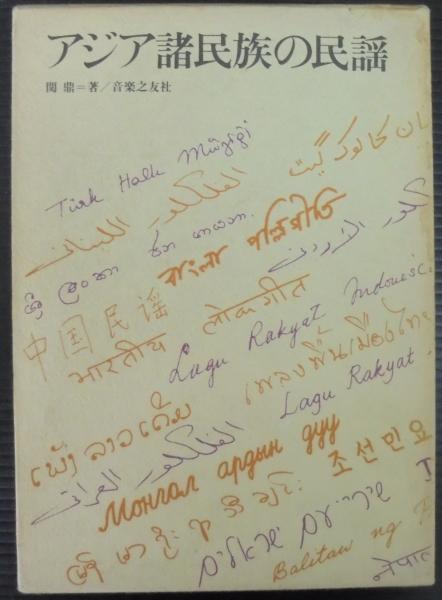 アジア諸民族の民謡
関 鼎=著/音楽之友社
Türk Halk Müziği
الفلكلور اللبناني
বাংলা পল্লিগীতি
中国民谣
भारतीय लोकगीत
Lagu Rakyat Indonesi
เพลงพื้นเมืองไทย
Lagu Rakyat
ເພງ ລາວເດີມ
الفلكلور العراقي
Монгол ардын дуу
조선민요
שירי עם ישראלים
Balitaw ng
नेपाल